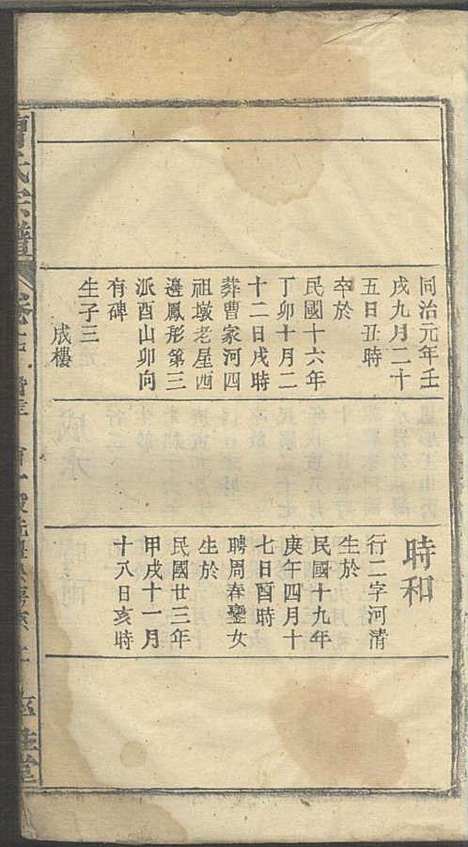 同治元年壬
戌九月二十
五日丑時
卒於
民國十六年
丁卯十月二
十二日戌時
葬曹家河四
祖墩老屋西
邊鳳形第三
派酉山卯向
有碑
生子三
成樓
時和
行二字河清
生於
民國十九年
庚午四月十
七日酉時
聘周春鑾女
生於
民國廿三年
甲戌十一月
十八日亥時
氏宗譜